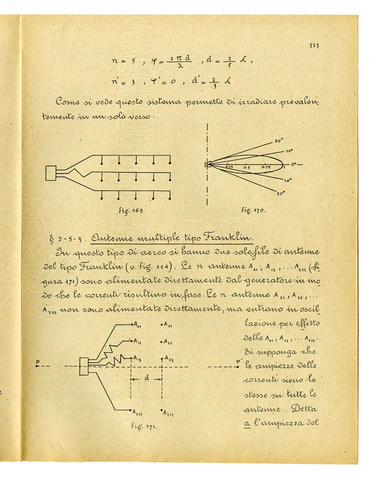 123
n = 5 , φ = 2πd/λ , d = 2/5 λ ,
n' = 3 , φ' = 0 , d' = 2/3 λ
Come si vede questo sistema permette di irradiare prevalen,
temente in un solo verso.
30°
10°
0°
10°
30°
Fig. 169.
Fig. 170.
§ 2-5-3. Antenne multiple tipo Franklin.
In questo tipo di aereo si hanno due sole file di antenne
del tipo Franklin (v. Fig. 114). Le n antenne A₁₁, A₁₂, ... A₁ₙ (fi
gura 171) sono alimentate direttamente dal generatore in mo
do che le correnti risultino in fase. Le n antenne A₂₁, A₂₂, ...
A₂ₙ non sono alimentate direttamente, ma entrano in oscil
lazione per effetto
delle A₁₁, A₁₂, ... A₁ₙ.
Si supponga che
le ampiezze delle
correnti sieno le
stesse su tutte le
antenne. Detta
a l'ampiezza del
A₁₁ A₂₁
A₁₂ A₂₂
A₁₃ A₂₃
P P'
d
A₁ₙ A₂ₙ
Fig. 171.